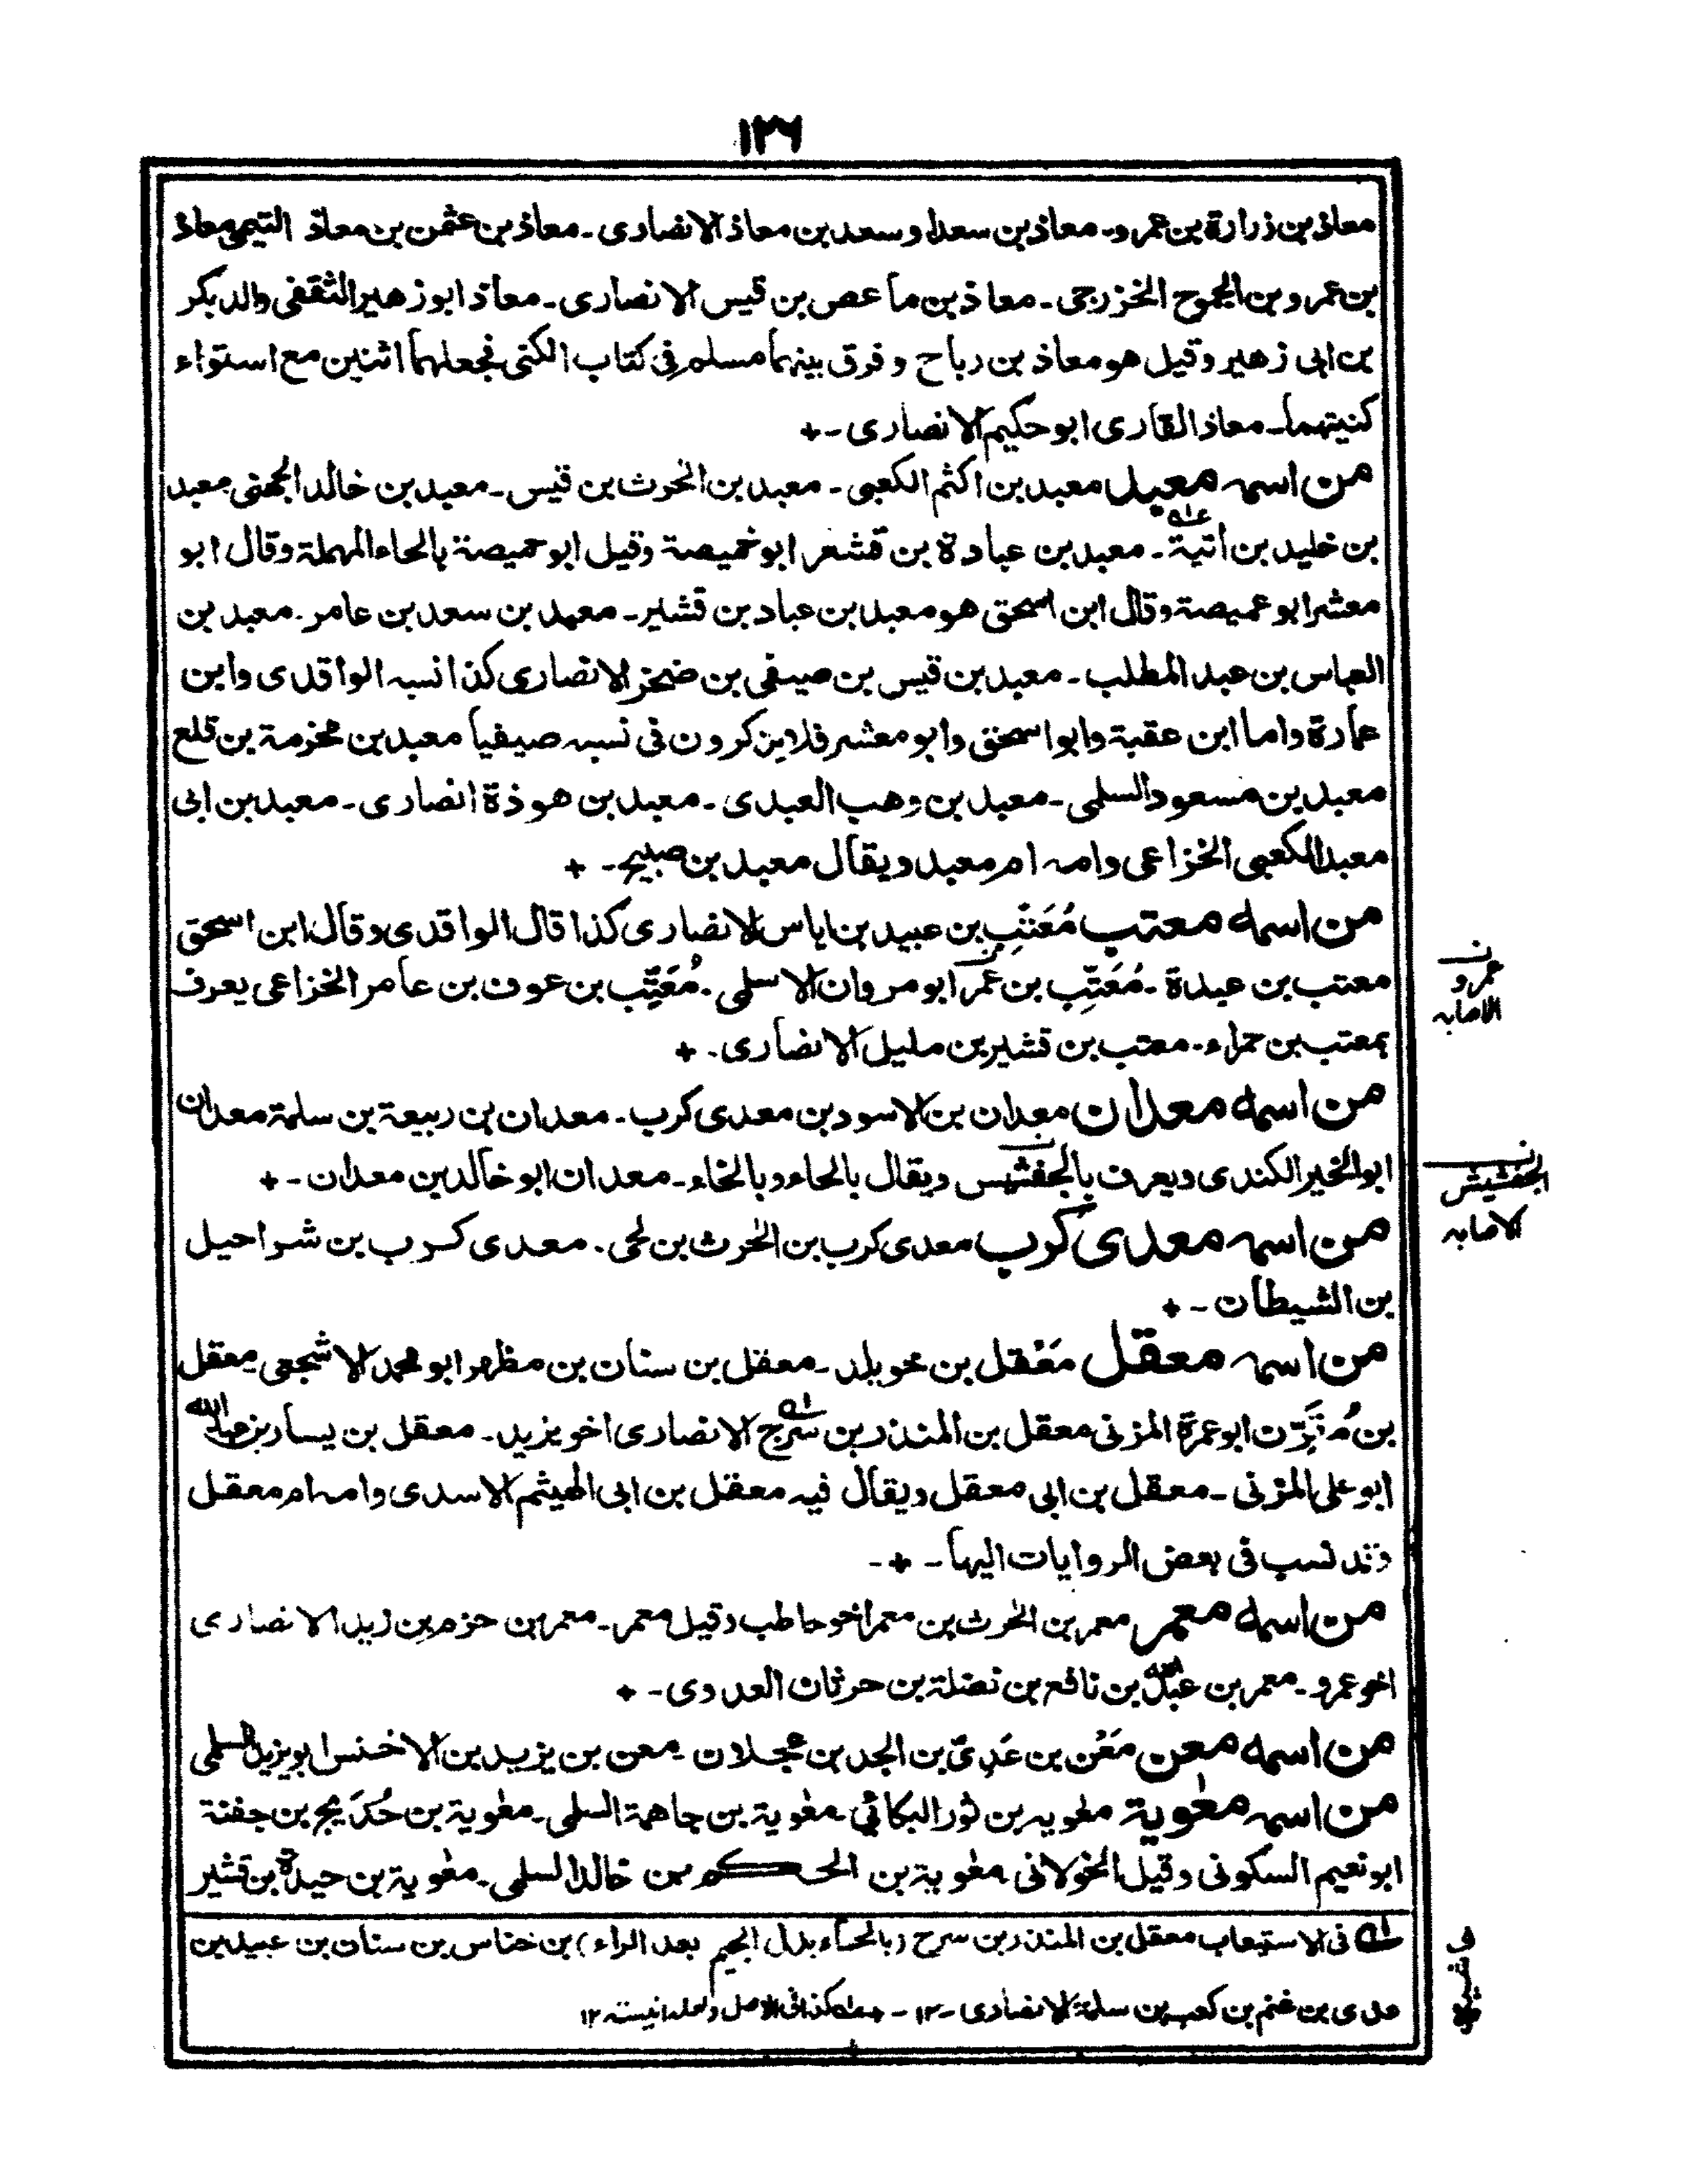 ١٢٦
معاذ بن زرارة بن عمرو۔ معاذ بن سعد او سعد بن معاذ الانصاری۔ معاذ بن عثمن بن معاذ التیمی معاذ
بن عمرو بن الجموح الخزرجی۔ معاذ بن ماعص بن قیس الانصاری۔ معاذ ابو زهیر الثقفی والد بکر
بن ابی زهیر وقیل هو معاذ بن رباح وفرق بینهما مسلم فی کتاب الکنی فجعلهما اثنین مع استواء
کنیتهما۔ معاذ القاری ابو حکیم الانصاری۔+
من اسمہ معبد معبد بن اکثم الکعبی۔ معبد بن الحٰرث بن قیس۔ معبد بن خالد الجهنی معبد
بن خلید بن اثبة۔ معبد بن عبادة بن قشعر ابو خمیصة وقیل ابو حمیصة بالحاء المهملة وقال ابو
معشر ابو عمیصة وقال ابن اسحق هو معبد بن عباد بن قشیر۔ معبد بن سعد بن عامر۔ معبد بن
العباس بن عبد المطلب۔ معبد بن قیس بن صیفی بن ضخر الانصاری کذا نسبہ الواقدی وابن
عمارة واما ابن عقبة وابو اسحق وابو معشر فلا یذکرون فی نسبہ صیفیا معبد بن مخرمة بن قلع
معبد بن مسعود السلمی۔ معبد بن وهب العبدی۔ معبد بن هوذة انصاری۔ معبد بن ابی
معبد الکعبی الخزاعی وامہ ام معبد ویقال معبد بن صبیح۔ +
من اسمه معتب مُعَتِّب بن عبید بن ایاس الانصاری کذا قال الواقدی وقال ابن اسحق
معتب بن عبدة۔ مُعَتِّب بن عمر ابو مروان الاسلمی۔ مُعَتِّب بن عوف بن عامر الخزاعی یعرف
بمعتب بن حمراء۔ معتب بن قشیر بن ملیل الانصاری۔ +
من اسمه معدان معدان بن الاسود بن معدی کرب۔ معدان بن ربیعة بن سلمة معدان
ابو الخیر الکندی ویعرف بالجفشیس ویقال بالحاء وبالخاء۔ معدان ابو خالد بن معدان۔ +
من اسمہ معدی کرب معدی کرب بن الحٰرث بن لحی۔ معدی کرب بن شراحیل
بن الشیطان۔ +
من اسمہ معقل مَعْقل بن خویلد۔ معقل بن سنان بن مظهر ابو محمد الاشجعی۔ معقل
بن مُقَرِّن ابو عمرة المزنی معقل بن المنذر بن سرج الانصاری اخو یزید۔ معقل بن یسار بن عبد الله
ابو علی المزنی۔ معقل بن ابی معقل ویقال فیہ معقل بن ابی الهیثم الاسدی وامہ ام معقل
وقد نسب فی بعض الروایات الیها۔ +۔
من اسمه معمر معمر بن الحٰرث بن معمر اخو حاطب وقیل معمر۔ معمر بن حزم بن زید الانصاری
اخو عمرو۔ معمر بن عبد الله بن نافع بن نضلة بن حرثان العدوی۔ +
من اسمه معن مَعْن بن عَدِیّ بن الجد بن عجلان۔ معن بن یزید بن الاخنس ابو یزید السلمی
من اسمہ معٰویة معٰویه بن ثور البکائی۔ معٰویة بن جاهمة السلمی۔ معٰویة بن حُدَیج بن جفنة
ابو نعیم السکونی وقیل الخولانی معٰویة بن الحکم بن خالد السلمی۔ معٰویة بن حیدة بن قشیر
لہ فی الاستیعاب معقل بن المنذر بن سرح (بالحاء بدل الجیم بعد الراء) بن خناس بن سنان بن عبید بن
عدی بن غنم بن کعب بن سلمة الانصاری۔١٢۔ عہ کذا فی الاصل ولعله انیسته ١٢
ن
عمرو
الاصابہ
ن
الجفشیش
الاصابہ